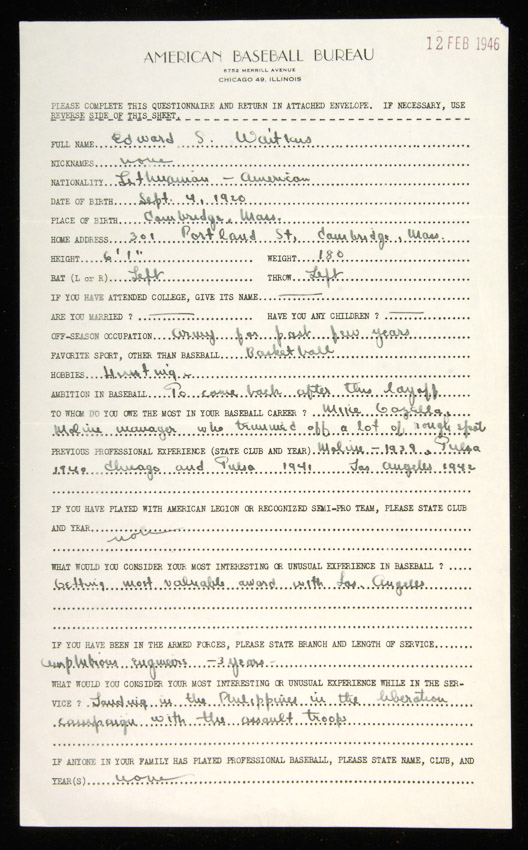 AMERICAN BASEBALL BUREAU
12 FEB 1946
6752 MERRILL AVENUE
CHICAGO 49, ILLINOIS
PLEASE COMPLETE THIS QUESTIONNAIRE AND RETURN IN ATTACHED ENVELOPE. IF NECESSARY, USE
REVERSE SIDE OF THIS SHEET.
FULL NAME Edward S. Waitkus
NICKNAMES none
NATIONALITY Lithuanian - American
DATE OF BIRTH Sept. 4, 1920
PLACE OF BIRTH Cambridge, Mass.
HOME ADDRESS 301 Portland St, Cambridge, Mass.
HEIGHT 6'1" WEIGHT 180
BAT (L or R) Left THROW Left
IF YOU HAVE ATTENDED COLLEGE, GIVE ITS NAME
ARE YOU MARRIED ? HAVE YOU ANY CHILDREN ?
OFF-SEASON OCCUPATION Army for past few years
FAVORITE SPORT, OTHER THAN BASEBALL Basketball
HOBBIES Hunting.
AMBITION IN BASEBALL To come back after this layoff
TO WHOM DO YOU OWE THE MOST IN YOUR BASEBALL CAREER ? Mike Gazella,
Moline manager who trimmed off a lot of rough spots
PREVIOUS PROFESSIONAL EXPERIENCE (STATE CLUB AND YEAR) Moline - 1939, Tulsa
1940 Chicago and Tulsa 1941 Los Angeles 1942
IF YOU HAVE PLAYED WITH AMERICAN LEGION OR RECOGNIZED SEMI-PRO TEAM, PLEASE STATE CLUB
AND YEAR
WHAT WOULD YOU CONSIDER YOUR MOST INTERESTING OR UNUSUAL EXPERIENCE IN BASEBALL ?
Getting most valuable award with Los Angeles
IF YOU HAVE BEEN IN THE ARMED FORCES, PLEASE STATE BRANCH AND LENGTH OF SERVICE
amphibious Engineers - 3 years -
WHAT WOULD YOU CONSIDER YOUR MOST INTERESTING OR UNUSUAL EXPERIENCE WHILE IN THE SER-
VICE ? Landing in the Philippines in the liberation
campaign with the assault troops
IF ANYONE IN YOUR FAMILY HAS PLAYED PROFESSIONAL BASEBALL, PLEASE STATE NAME, CLUB, AND
YEAR(S) none